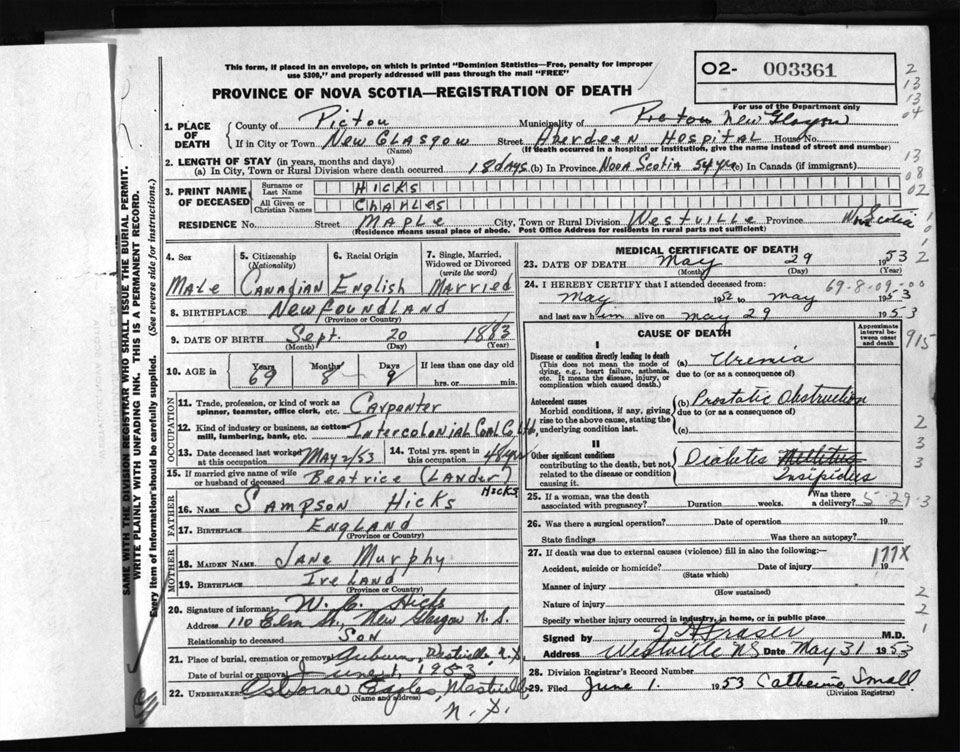 This form, if placed in an envelope, on which is printed "Dominion Statistics—Free, penalty for improper
use $300," and properly addressed will pass through the mail "FREE"
PROVINCE OF NOVA SCOTIA—REGISTRATION OF DEATH
O2- 003361
For use of the Department only
1. PLACE OF DEATH
County of Pictou Municipality of Pictou New Glasgow
If in City or Town New Glasgow Street Aberdeen Hospital House No.
(Name) (If death occurred in a hospital or institution, give the name instead of street and number)
2. LENGTH OF STAY (in years, months and days)
(a) In City, Town or Rural Division where death occurred 18 days (b) In Province Nova Scotia 54 yrs (c) In Canada (if immigrant)
3. PRINT NAME OF DECEASED
Surname or Last Name HICKS
All Given or Christian Names CHARLES
RESIDENCE No. Street Maple City, Town or Rural Division Westville Province Nova Scotia
(Residence means usual place of abode. Post Office Address for residents in rural parts not sufficient)
SAME WITH THE DIVISION REGISTRAR WHO SHALL ISSUE THE BURIAL PERMIT.
WRITE PLAINLY WITH UNFADING INK. THIS IS A PERMANENT RECORD.
Every item of information should be carefully supplied. (See reverse side for instructions.)
4. Sex Male
5. Citizenship (Nationality) Canadian
6. Racial Origin English
7. Single, Married, Widowed or Divorced (write the word) Married
8. BIRTHPLACE Newfoundland
(Province or Country)
9. DATE OF BIRTH Sept. 20 1883
(Month) (Day) (Year)
10. AGE in Years 69 Months 8 Days 9 If less than one day old
hrs. or min.
OCCUPATION
11. Trade, profession, or kind of work as spinner, teamster, office clerk, etc. Carpenter
12. Kind of industry or business, as cotton mill, lumbering, bank, etc. Intercolonial Coal Co. Ltd.
13. Date deceased last worked at this occupation May 2/53
14. Total yrs. spent in this occupation 48 yrs
15. If married give name of wife or husband of deceased Beatrice (Lander) Hicks
FATHER
16. NAME Sampson Hicks
17. BIRTHPLACE England
(Province or Country)
MOTHER
18. MAIDEN NAME Jane Murphy
19. BIRTHPLACE Ireland
(Province or Country)
20. Signature of informant W. C. Hicks
Address 110 Elm St., New Glasgow N.S.
Relationship to deceased Son
21. Place of burial, cremation or removal Auburn, Westville N.S.
Date of burial or removal June 1, 1953
22. UNDERTAKER Osborne Eagles, Westville
(Name and address)
N.S.
MEDICAL CERTIFICATE OF DEATH
23. DATE OF DEATH May 29 1953
(Month) (Day) (Year)
24. I HEREBY CERTIFY that I attended deceased from: 69-8-09-00
May 1952 to May 1953
and last saw him alive on May 29 1953
CAUSE OF DEATH
Approximate interval between onset and death
I
Disease or condition directly leading to death
(This does not mean the mode of dying, e.g., heart failure, asthenia, etc. It means the disease, injury, or complication which caused death.)
(a) Uremia
due to (or as a consequence of)
Antecedent causes
Morbid conditions, if any, giving rise to the above cause, stating the underlying condition last.
(b) Prostatic Obstruction
due to (or as a consequence of)
(c)
II
Other significant conditions
contributing to the death, but not related to the disease or condition causing it.
Diabetes Mellitus
Insipidus
25. If a woman, was the death associated with pregnancy? Duration weeks. Was there a delivery? 5-29-3
26. Was there a surgical operation? Date of operation 19
State findings Was there an autopsy?
27. If death was due to external causes (violence) fill in also the following:— 177X
Accident, suicide or homicide? Date of injury 19
(State which)
Manner of injury
(How sustained)
Nature of injury
Specify whether injury occurred in industry, in home, or in public place
Signed by J A Fraser M.D.
Address Westville NS Date May 31 1953
28. Division Registrar's Record Number
29. Filed June 1. 1953 Catherine Small
(Division Registrar)
2
13
13
04
13
08
02
2
915
2
3
3
2
2
1